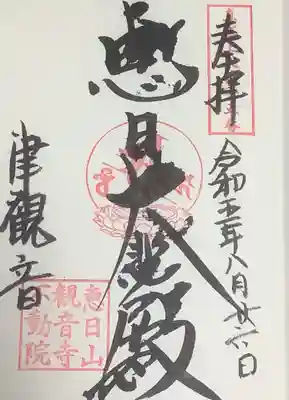 奉拝
令和五年八月廿六日
恵日大悲殿
津観音
恵日山
観音寺
不動院